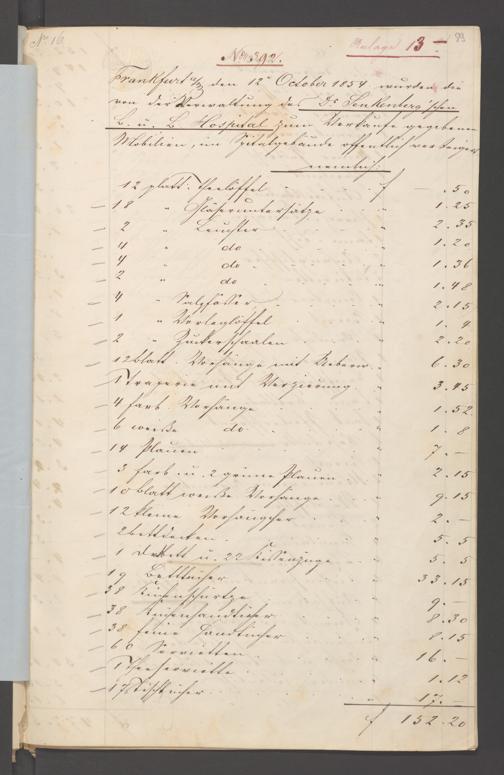 No 16
Anlage 13 –
No. 392.
Frankfurt a/M den 12n October 1854 wurden die
von der Verwaltung des Dr. Senkenberg'schen
B. u. B. Hospital zum Verkaufe gegebenen
Mobilien, im Spitalgebäude öffentlich versteigert
nemlich:
12 platt. Theelöffel f – . 50
18 " Gläseruntersätze " 1. 25
2 " Leuchter " 2. 35
4 " do " 1. 20
4 " do " 1. 36
2 " do " 1. 48
4 " Salzfässer " 2. 15
1 " Vorleglöffel " 1. 4
2 " Zuckerschaalen " 2. 20
12 blatt Vorhänge mit " 6. 30
1 Draperie mit Verzierung " 3. 45
4 farb. Vorhänge " 1. 52
6 weiße do " 1. 8
14 Plauen " 7. –
3 farb. u. 2 grüne Plauen " 2. 15
10 blatt weiße Vorhänge " 9. 15
12 kleine " 2. –
2 Bettdecken " 5. 5
1 u. 22 Kissenzüge " 5. 5
19 Betttücher " 33. 15
38 Küchenschürze " 9. –
38 Küchenhandtücher " 8. 30
38 feine Handtücher " 8. 15
60 Servietten " 16. –
1 Theeserviette " 1. 12
17 Tischtücher " 17. –
f 152. 20